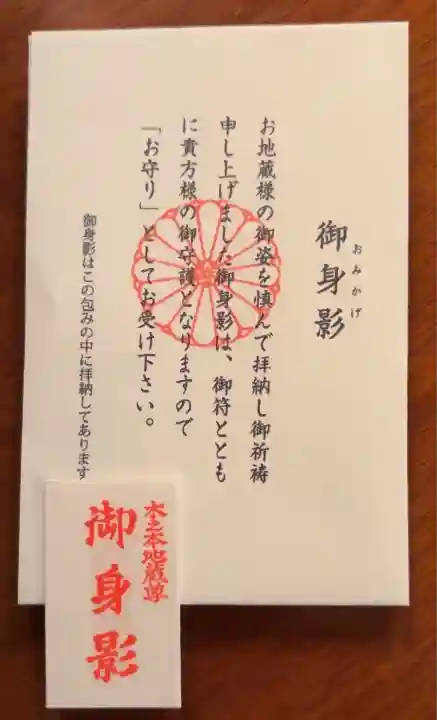 御身影
おみかげ
お地蔵様の御姿を慎んで拝納し御祈祷
申し上げました御身影は、御符ととも
に貴方様の御守護となりますので
「お守り」としてお受け下さい。
御身影はこの包みの中に拝納してあります
木之本地蔵尊
御身影